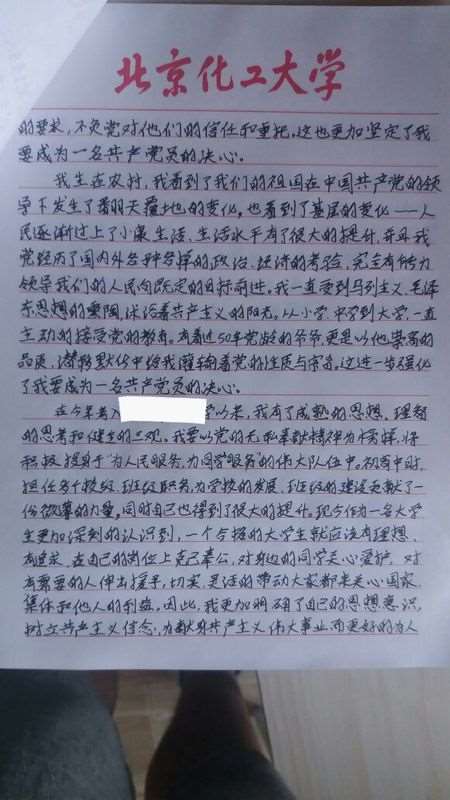 北京化工大学
的要求，不负党对他们的信任和重托。这也更加坚定了我
要成为一名共产党员的决心。
我生在农村，我看到了我们的祖国在中国共产党的领
导下发生了翻天覆地的变化，也看到了基层的变化——人
民逐渐过上了小康生活，生活水平有了很大的提升，并且我
党经历了国内外各种各样的政治、经济的考验，完全有能力
领导我们的人民向既定的目标前进。我一直受到马列主义、毛泽
东思想的熏陶，沐浴着共产主义的阳光。从小学、中学到大学，一直
主动的接受党的教育。有着近50年党龄的爷爷，更是以他崇高的
品质，潜移默化中给我灌输着党的性质与宗旨，这进一步强化
了我要成为一名共产党员的决心。
在今年考入 学以来，我有了成熟的思想、理智
的思考和健全的三观。我要以党的无私奉献精神为榜样，将
积极投身于“为人民服务，为同学服务”的伟大队伍中。初高中时，
担任多个校级、班级职务，为学校的发展、班级的建设贡献了一
份微薄的力量，同时自己也得到了很大的提升。现今作为一名大学
生更加深刻的认识到，一个合格的大学生就应该有理想、
有追求，在自己的岗位上克己奉公，对身边的同学关心爱护，对
有需要的人伸出援手，切实、灵活的带动大家都来关心国家、
集体和他人的利益。因此，我更加明确了自己的思想意识，
树立共产主义信念，为献身共产主义伟大事业，而更好的为人